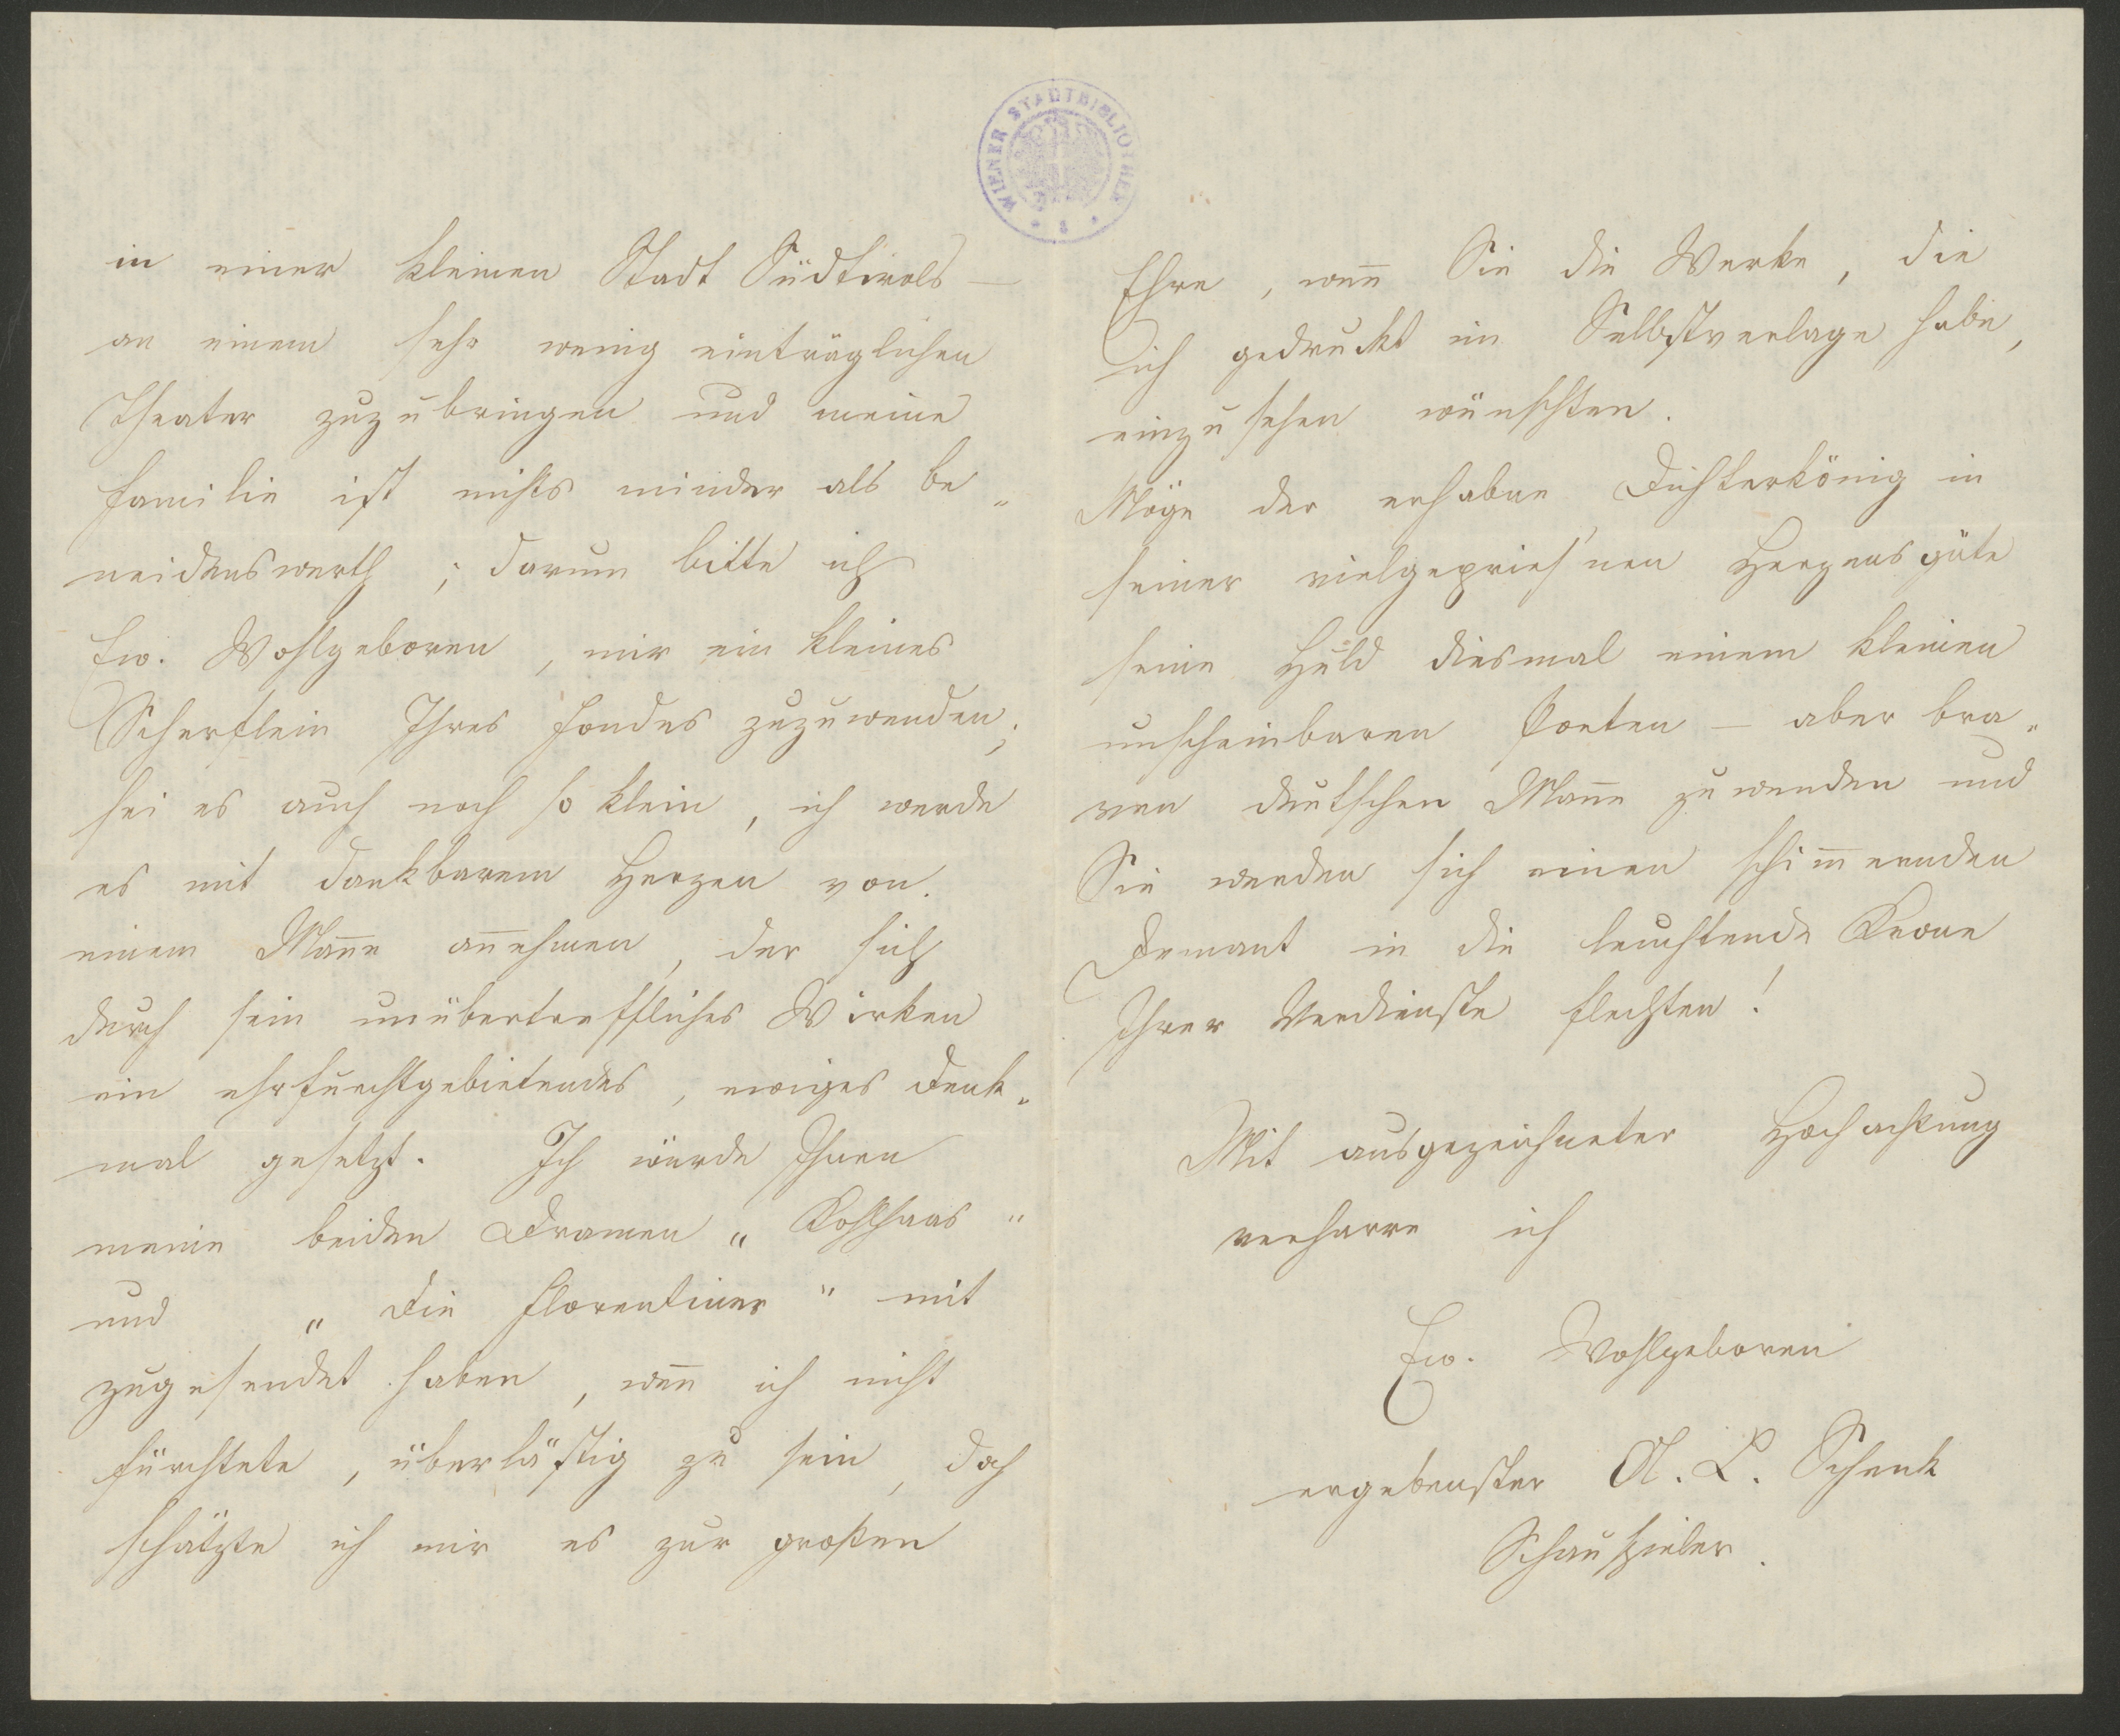 WIENER STADTBIBLIOTHEK
in einer kleinen Stadt Südtirols —
an einem sehr wenig einträglichen
Theater zuzubringen und meine
Familie ist nichts minder als be-
neidenswerth; darum bitte ich
Ew. Wohlgeboren, mir ein kleines
Scherflein Ihres Fondes zuzuwenden;
sei es auch noch so klein, ich werde
es mit dankbarem Herzen von
einem Mann̄e an̄ehmen, der sich
durch sein unübertreffliches Wirken
ein ehrfurchtgebietendes, ewiges Denk-
mal gesetzt. Ich würde Ihnen
meine beiden Dramen „Kohlhaas"
und „Die Florentiner" mit
zugesendet haben, wen̄ ich nicht
fürchtete, überlästig zu sein, doch
schätzte ich mir es zur großen
Ehre, wen̄ Sie die Werke, die
ich gedruckt im Selbstverlage habe,
einzusehen wünschten.
Möge der erhabne Dichterkönig in
seiner vielgepries'nen Herzensgüte
seine Huld diesmal einem kleinen
unscheinbaren Poeten — aber bra-
ven deutschen Man̄e zuwenden und
Sie werden sich einen schim̄ernden
Demant in die leuchtende Krone
Ihrer Verdienste flechten!
Mit ausgezeichneter Hochachtung
verharre ich
Ew. Wohlgeboren
ergebenster A. L. Schenk
Schauspieler.